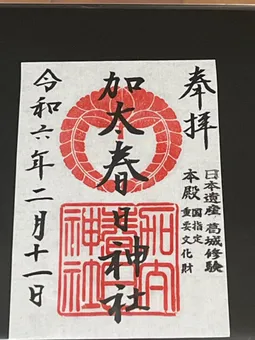 奉拝
日本遺産・葛城修験
本殿
国指定
重要文化財
加太春日神社
加太
春日
神社
令和六年二月十一日